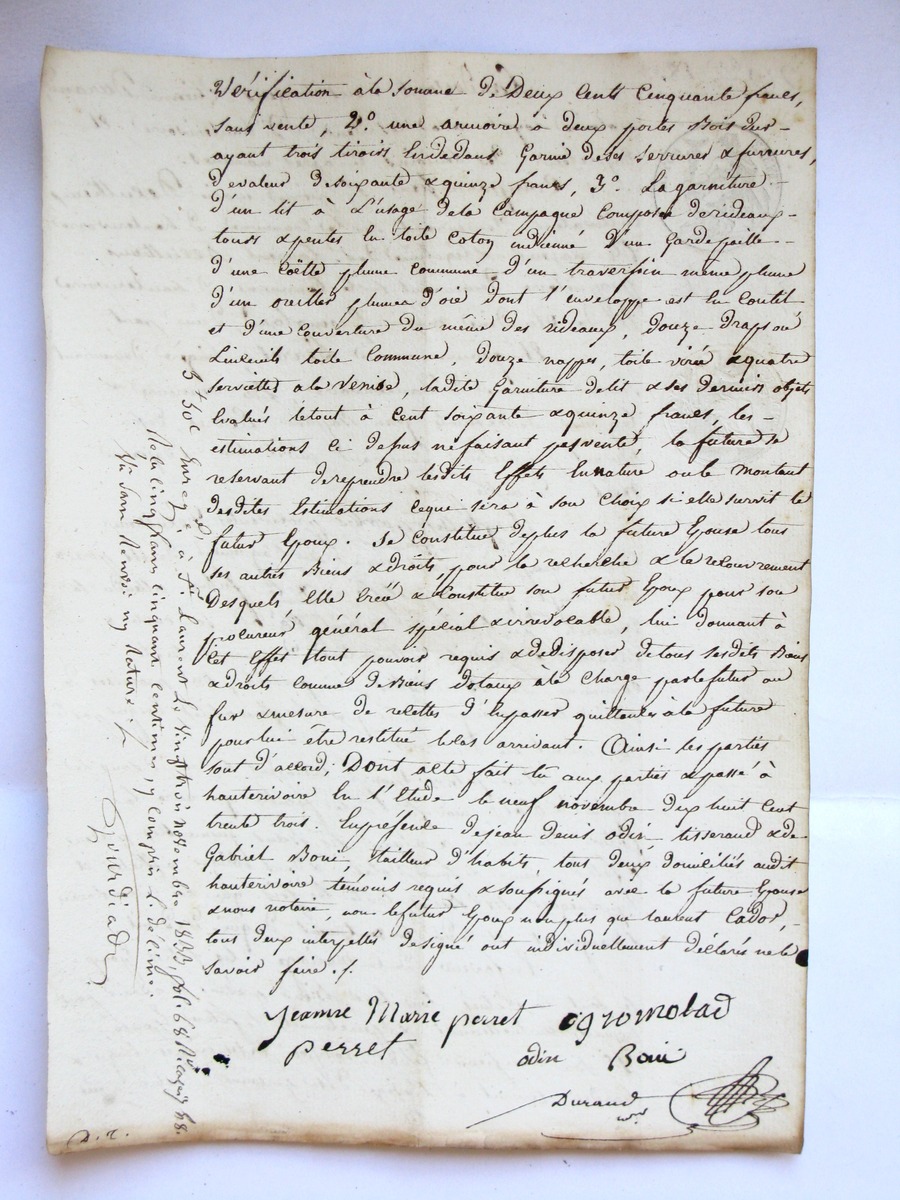 Vérification à la somme de Deux Cents Cinquante francs,
sans vente, 2.o une armoire à deux portes Bois dur
ayant trois tiroirs Endedans Garnie de ses serrures & ferrures,
de valeur de soixante & quinze francs, 3.o La garniture
d'un lit à L'usage de la Campagne Composée de rideaux
tours & pentes En toile Coton indienne D'un Gardepaille
d'une Coëtte plume commune d'un traversin même plume
d'un oreiller plumes d'oie dont l'enveloppe est En Coutil
et d'une Couverture du même des rideaux, Douze Draps ou
Linceuils toile Commune, Douze nappes, toile & quatre
serviettes à la Venise, ladite Garniture de lit & ses derniers objets
Evalués le tout à Cent soixante & quinze francs, les
estimations Ci dessus ne faisant pas vente, la future se
reservant de reprendre lesdits Effets En nature ou le montant
desdites Estimations ce qui sera à son Choix si elle survit le
futur Epoux. Se Constitue de plus la future Epouse tous
ses autres Biens & Droits, pour la recherche & le recouvrement
Desquels Elle Créé & Constitue son futur Epoux pour son
procureur général spécial & irrevocable, lui donnant à
Cet Effet tout pouvoir requis & de disposer de tous ses dits Biens
& droits comme de Biens dotaux à la Charge par le futur au
fur & mesure de recettes d'En passer quittances à la future
pour lui etre restitué le cas arrivant. Ainsi les parties
sont d'accord; Dont acte fait lu aux parties & passé à
hauterivoire En l'Etude le neuf novembre dix huit Cent
trente trois. En présence de jean denis odin, tisserand & de
Gabriel Boué, tailleur d'habits, tous deux domiciliés audit
hauterivoire témoins requis & soussignés avec la future Epouse
& nous notaire, non le futur Epoux non plus que laurent Cador,
tous deux interpellés de signé ont individuellement déclarés ne le
savoir faire ./.
jeanne Marie perret
perret
odin
Durand
3f 50c Enreg.é à St. Laurent Le vingt trois novembre 1833, fol. 68
Reçu cinq francs cinquante centimes, y compris L. décime.
D. T.